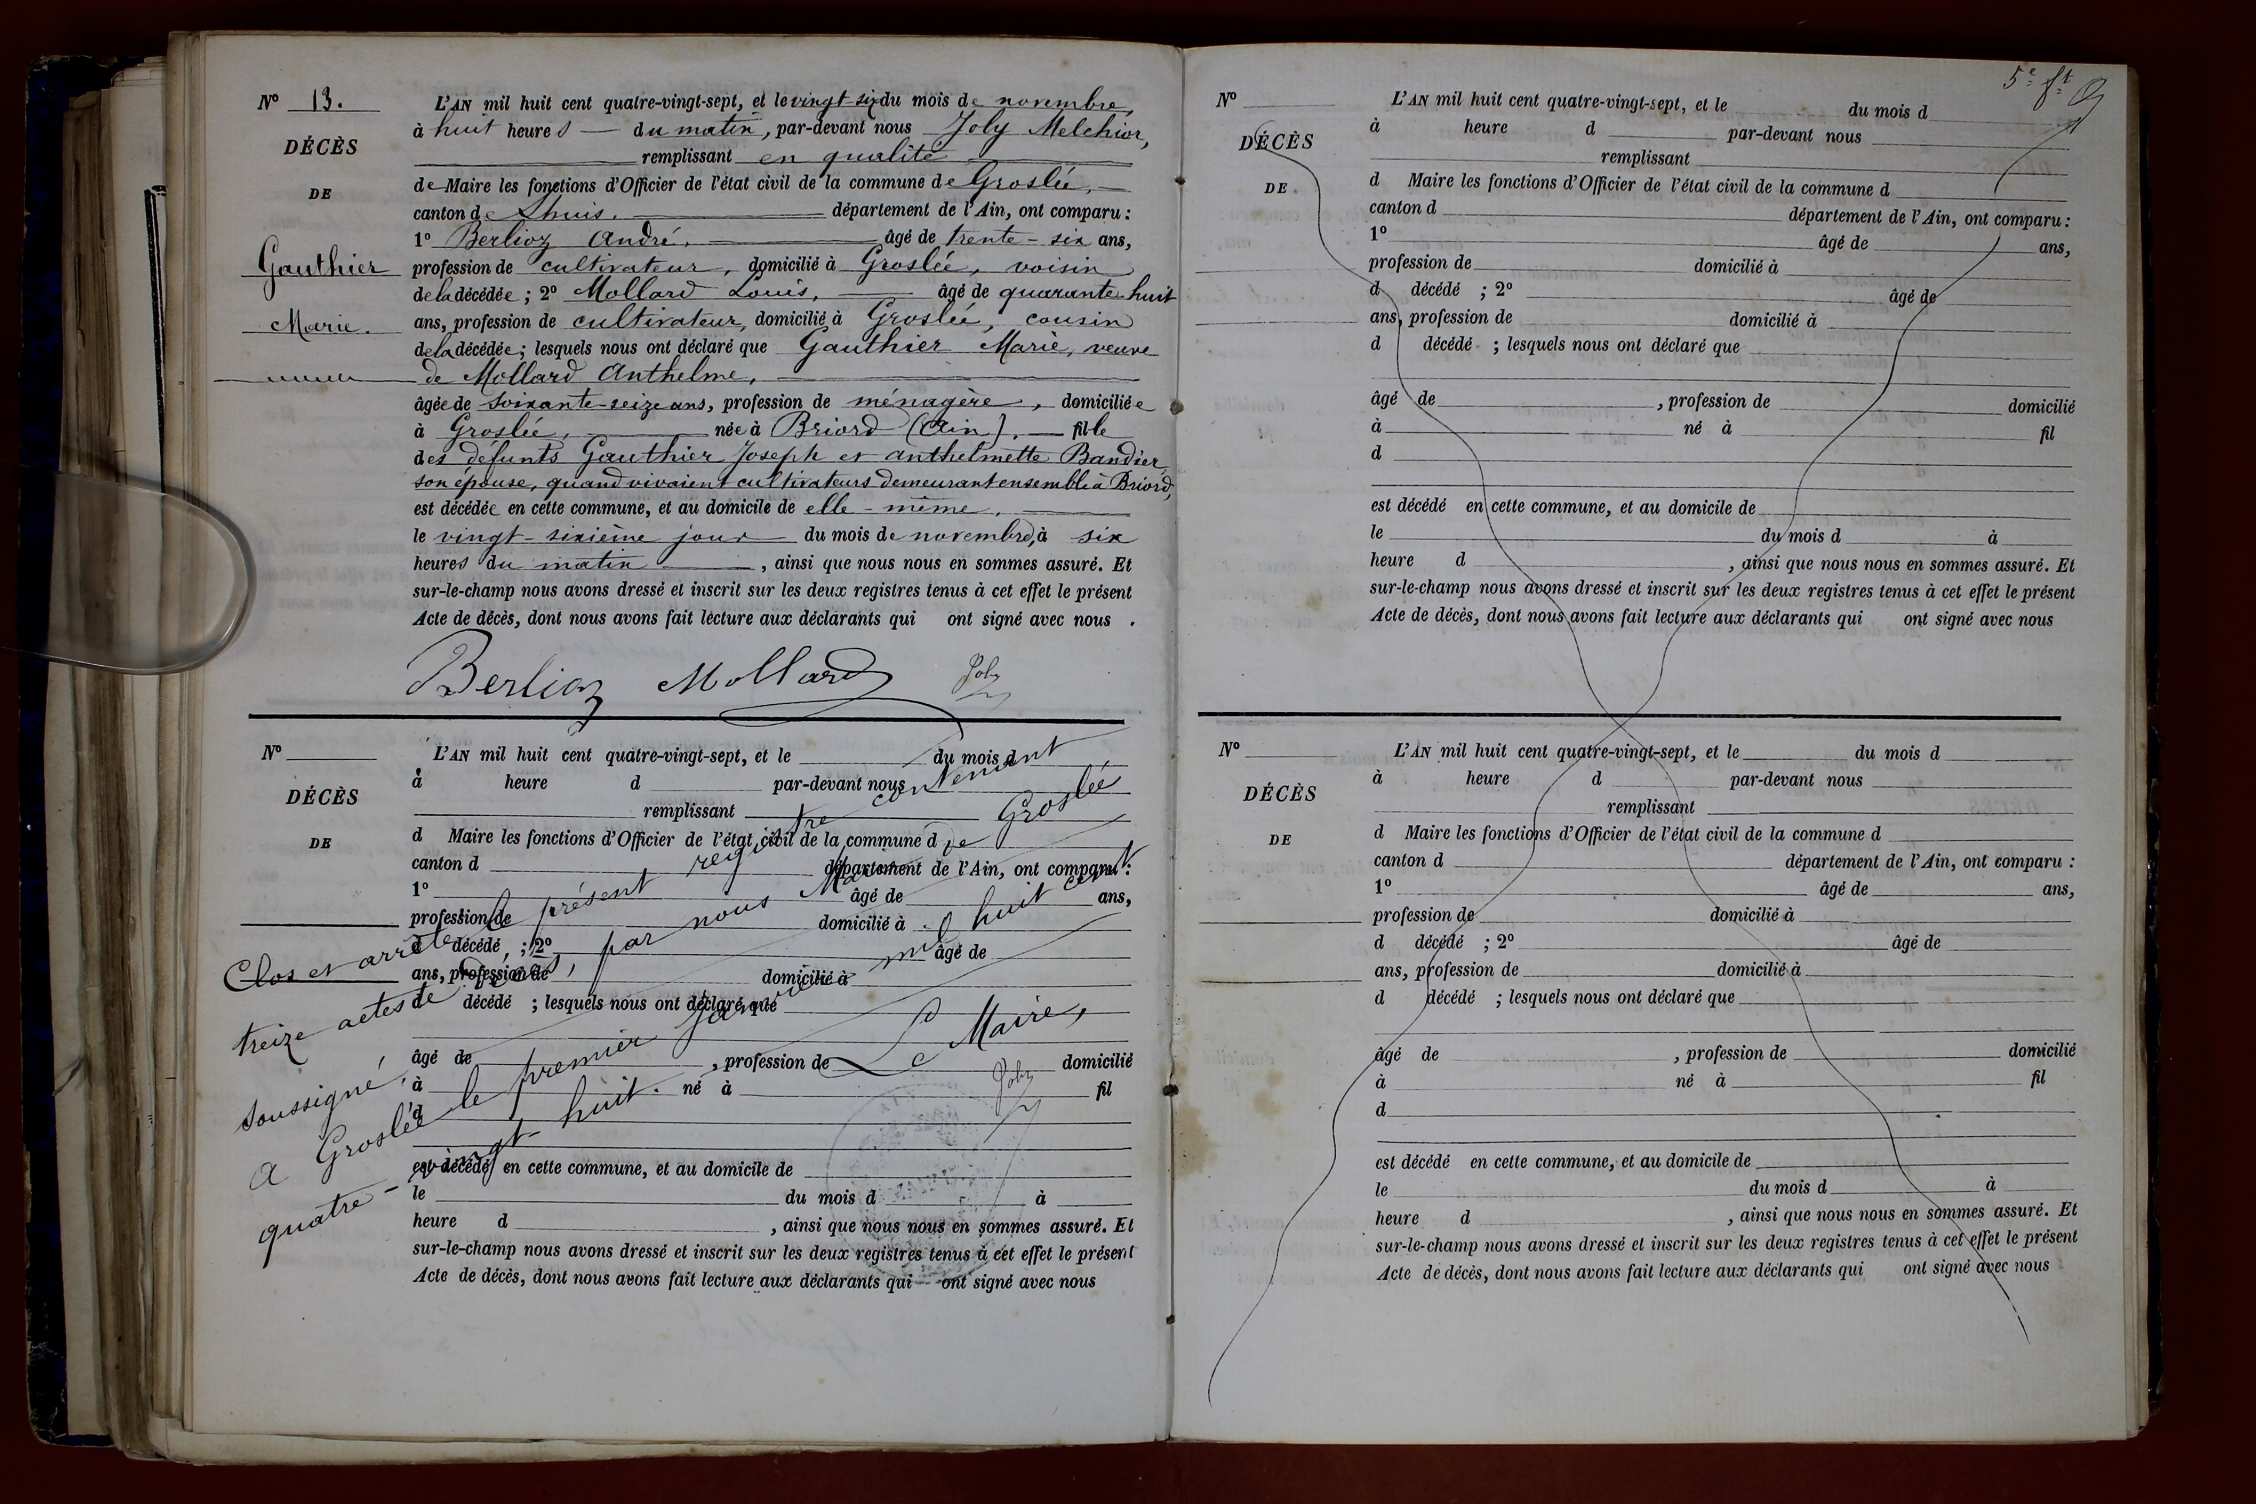 N° 13.
DÉCÈS
DE
Gauthier
Marie.
L'AN mil huit cent quatre-vingt-sept, et le vingt-six du mois de novembre,
à huit heures du matin, par-devant nous Joly Melchior,
remplissant en qualité
de Maire les fonctions d'Officier de l'état civil de la commune de Groslée,
canton de Lhuis. département de l'Ain, ont comparu :
1° Berlioz André, âgé de trente-six ans,
profession de cultivateur, domicilié à Groslée, voisin
de la décédée ; 2° Mollard Louis, âgé de quarante-huit
ans, profession de cultivateur, domicilié à Groslée, cousin
de la décédée ; lesquels nous ont déclaré que Gauthier Marie, veuve
de Mollard Anthelme,
âgée de soixante-seize ans, profession de ménagère, domiciliée
à Groslée, née à Briord (Ain). fille
des défunts Gauthier Joseph et Anthelmette Bandier,
son épouse, quand vivaient cultivateurs demeurant ensemble à Briord,
est décédée en cette commune, et au domicile de elle-même.
le vingt-sixième jour du mois de novembre, à six
heures du matin, ainsi que nous nous en sommes assuré. Et
sur-le-champ nous avons dressé et inscrit sur les deux registres tenus à cet effet le présent
Acte de décès, dont nous avons fait lecture aux déclarants qui ont signé avec nous .
Berlioz Mollard Joly
N°
DÉCÈS
DE
L'AN mil huit cent quatre-vingt-sept, et le du mois d
à heure d par-devant nous
remplissant
d Maire les fonctions d'Officier de l'état civil de la commune d
canton d département de l'Ain, ont comparu :
1° âgé de ans,
profession de domicilié à
d décédé ; 2° âgé de
ans, profession de domicilié à
d décédé ; lesquels nous ont déclaré que
âgé de , profession de domicilié
à né à fil
d
est décédé en cette commune, et au domicile de
le du mois d à
heure d , ainsi que nous nous en sommes assuré. Et
sur-le-champ nous avons dressé et inscrit sur les deux registres tenus à cet effet le présent
Acte de décès, dont nous avons fait lecture aux déclarants qui ont signé avec nous
Clos et arrêté le présent registre contenant
treize actes de décès, par nous Maire de Groslée
soussigné,
a Groslée le premier janvier mil huit cent
quatre-vingt-huit.
Le Maire,
Joly
5e ft
N°
DÉCÈS
DE
L'AN mil huit cent quatre-vingt-sept, et le du mois d
à heure d par-devant nous
remplissant
d Maire les fonctions d'Officier de l'état civil de la commune d
canton d département de l'Ain, ont comparu :
1° âgé de ans,
profession de domicilié à
d décédé ; 2° âgé de
ans, profession de domicilié à
d décédé ; lesquels nous ont déclaré que
âgé de , profession de domicilié
à né à fil
d
est décédé en cette commune, et au domicile de
le du mois d à
heure d , ainsi que nous nous en sommes assuré. Et
sur-le-champ nous avons dressé et inscrit sur les deux registres tenus à cet effet le présent
Acte de décès, dont nous avons fait lecture aux déclarants qui ont signé avec nous
N°
DÉCÈS
DE
L'AN mil huit cent quatre-vingt-sept, et le du mois d
à heure d par-devant nous
remplissant
d Maire les fonctions d'Officier de l'état civil de la commune d
canton d département de l'Ain, ont comparu :
1° âgé de ans,
profession de domicilié à
d décédé ; 2° âgé de
ans, profession de domicilié à
d décédé ; lesquels nous ont déclaré que
âgé de , profession de domicilié
à né à fil
d
est décédé en cette commune, et au domicile de
le du mois d à
heure d , ainsi que nous nous en sommes assuré. Et
sur-le-champ nous avons dressé et inscrit sur les deux registres tenus à cet effet le présent
Acte de décès, dont nous avons fait lecture aux déclarants qui ont signé avec nous